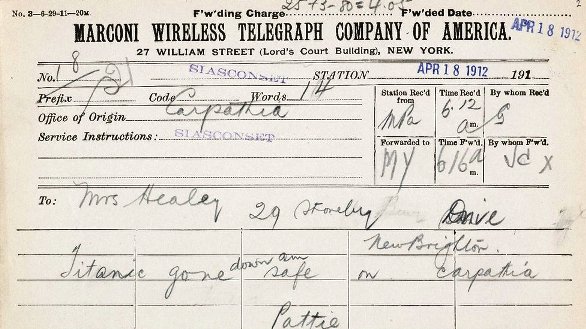 No. 3—6-29-11—20M. F'w'ding Charge 25+3-80=4.05 F'w'ded Date
MARCONI WIRELESS TELEGRAPH COMPANY OF AMERICA. APR 18 1912
27 WILLIAM STREET (Lord's Court Building), NEW YORK.
No. 8 SIASCONSET STATION APR 18 1912 191
Prefix Code Words 14
Office of Origin Carpathia
Service Instructions: SIASCONSET
Station Rec'd from Time Rec'd By whom Rec'd
MPa 6.12 a m. G
Forwarded to Time F'w'd. By whom F'w'd.
MY 616 a m.
To: Mrs Healey 29 Drive
New Brighton.
Titanic gone down am safe on carpathia
Pattie